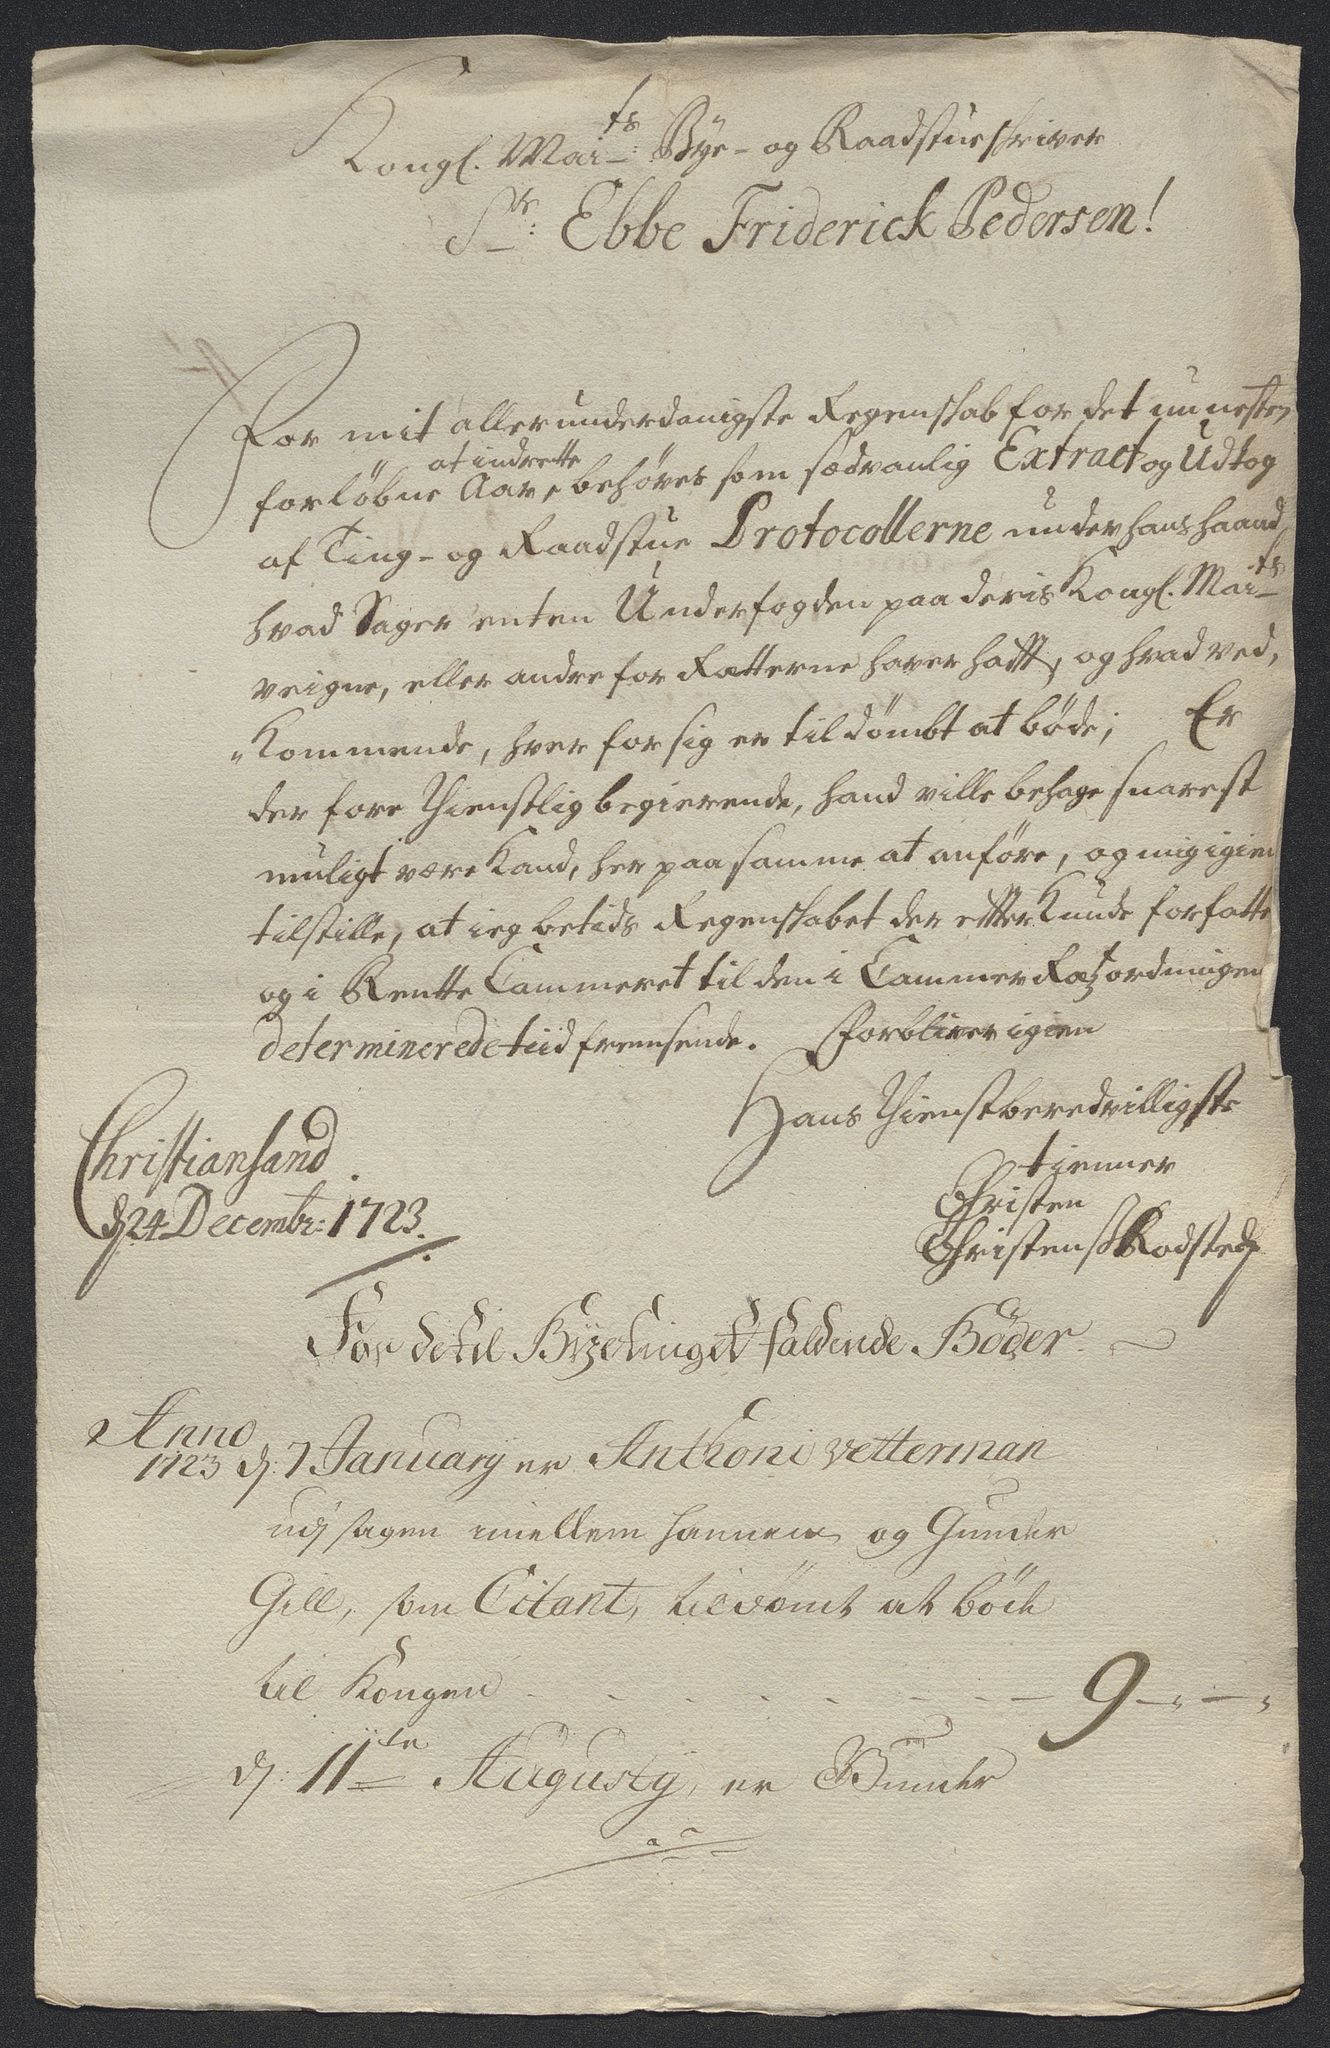 Kongl. Maits: Bÿe- og Raadstueskriver
Sr: Ebbe Friderick Pedersen!
For mit allerunderdanigste Regenskab for det nu nesten
at indrette
forløbne Aar, behøves som sædvanlig Extract og Udtog
af Ting- og Raadstue Protocollerne under hans haand,
hvad Sager enten Underfogden paa deris Kongl. Maits
veigne, eller andre for Rætterne haver hafft, og hvad ved,
„Kommende, hver for sig er tildømbt at bøde; Er
der fore tienstlig begierende, hand ville behage snarest
muligt være kand, her paa samme at anføre, og mig igien
tilstille, at ieg betids Regenskabet der effter kunde forfatte
og i Rentte Cammeret til den i Cammer Ræt ordningen
determinerede tiid fremsende. Forbliver igien
Hans tienstberedvilligste
tienner
Christen
Christens Rodsted
Christiansand
d 24 Decembr: 1723.
For de til Bÿetinget faldende Bøder.
Anno
1723 d: 7 January er Anthoni Vetterman
udj sagen imellem hannem og Gunder
Gill, som Citant, tildömt at böde
til Kongen . . . . . . . . 9 - „ - „
d: 11te Augusty, er Gunder